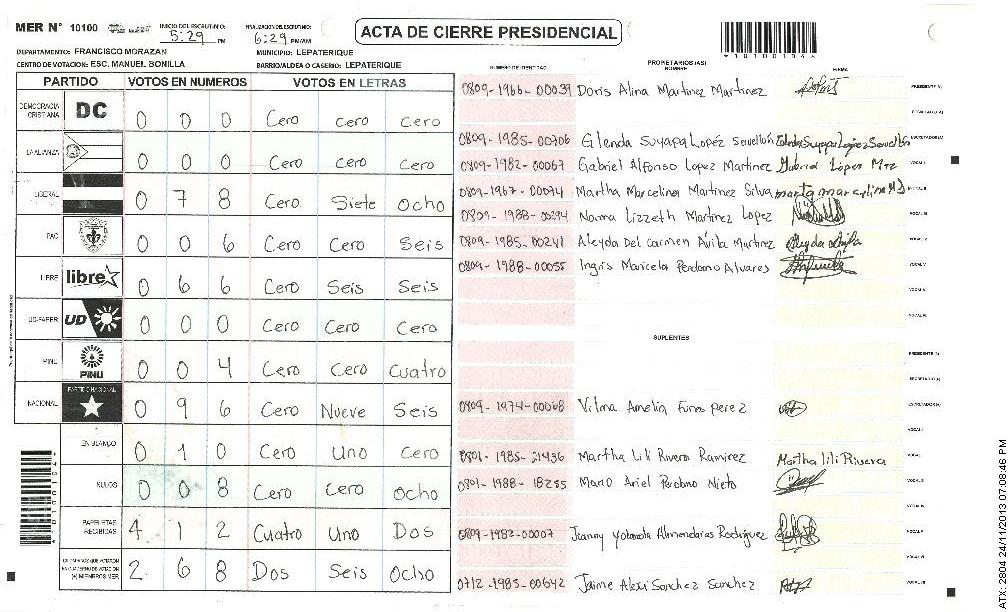 MER N° 10100
INICIO DEL ESCRUTINIO: 5:29 PM
FINALIZACION DEL ESCRUTINIO: 6:29 PM/AM
ACTA DE CIERRE PRESIDENCIAL
DEPARTAMENTO: FRANCISCO MORAZAN
MUNICIPIO: LEPATERIQUE
CENTRO DE VOTACION: ESC. MANUEL BONILLA
BARRIO/ALDEA O CASERIO: LEPATERIQUE
PARTIDO VOTOS EN NUMEROS VOTOS EN LETRAS
DEMOCRACIA CRISTIANA DC 0 0 0 Cero cero cero
LA ALIANZA 0 0 0 Cero cero cero
LIBERAL 0 7 8 Cero Siete Ocho
PAC 0 0 6 Cero Cero Seis
LIBRE libre 0 6 6 Cero Seis Seis
UD-FAPER UD 0 0 0 Cero Cero Cero
PINU PINU 0 0 4 Cero Cero Cuatro
NACIONAL PARTIDO NACIONAL 0 9 6 Cero Nueve Seis
EN BLANCO 0 1 0 Cero Uno Cero
NULOS 0 0 8 Cero Cero Ocho
PAPELETAS RECIBIDAS 4 1 2 Cuatro Uno Dos
CIUDADANOS QUE VOTARON EN CUADERNO DE VOTACION (+) MIEMBROS MER 2 6 8 Dos Seis Ocho
NUMERO DE IDENTIDAD
PROPIETARIOS (AS)
NOMBRE
FIRMA
0809-1966-00039 Doris Alina Martinez Martinez PRESIDENTE (A)
SECRETARIO (A)
0809-1985-00706 Glenda Suyapa Lopéz Servellón Glenda Suyapa Lopez Servellón ESCRUTADOR (A)
0809-1982-00067 Gabriel Alfonso Lopez Martinez Gabriel López Mtz VOCAL I
0809-1967-00074 Martha Marcelina Martinez Silva marta marcelina MS VOCAL II
0809-1988-00294 Norma Lizzeth Martinez Lopez VOCAL III
0809-1985-00241 Aleyda Del Carmen Ávila Martinez Aleyda Avila VOCAL IV
0809-1988-00055 Ingris Maricela Perdomo Alvares VOCAL V
VOCAL VI
VOCAL VII
SUPLENTES
PRESIDENTE (A)
SECRETARIO (A)
0809-1974-00068 Vilma Amelia Funes perez ESCRUTADOR (A)
VOCAL I
0801-1985-21436 Martha Lili Rivera Ramirez Martha lili Rivera VOCAL II
0801-1988-18255 Mario Ariel Perdomo Nieto VOCAL III
VOCAL IV
0809-1982-00007 Jeanny Yolanda Almendarias Rodriguez VOCAL V
VOCAL VI
0712-1985-00642 Jaime Alexi Sanchez Sanchez VOCAL VII
ATX: 2804 24/11/2013 07:08:46 PM